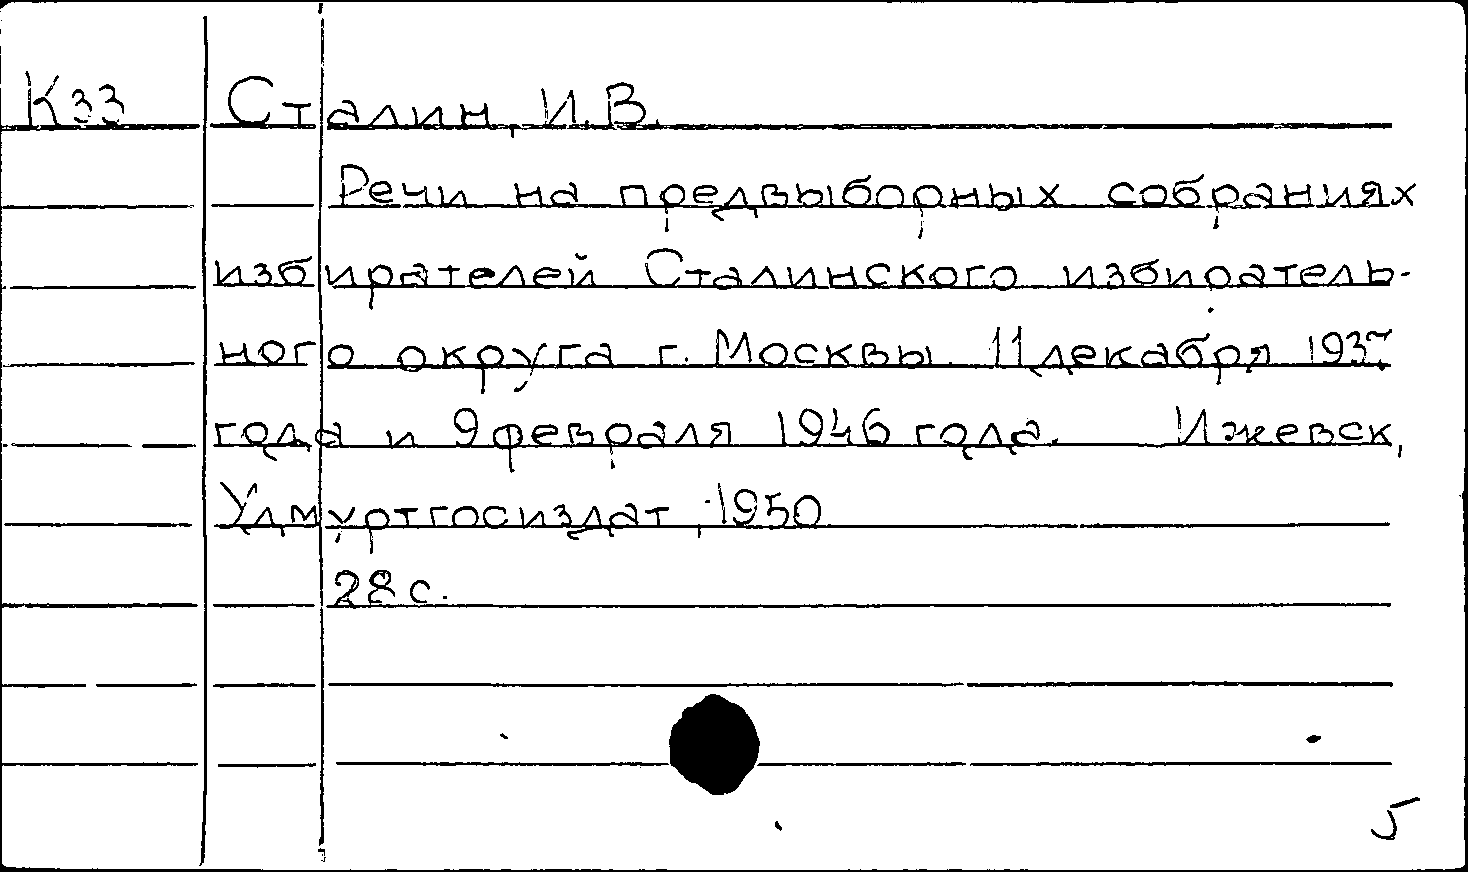 К33 Сталин, И.В.
Речи на предвыборных собраниях
избирателей Сталинского избиратель-
ного округа г. Москвы 11 декабря 1937
года и 9 февраля 1946 года. Ижевск,
Удмуртгосиздат, 1950
28 с.
5